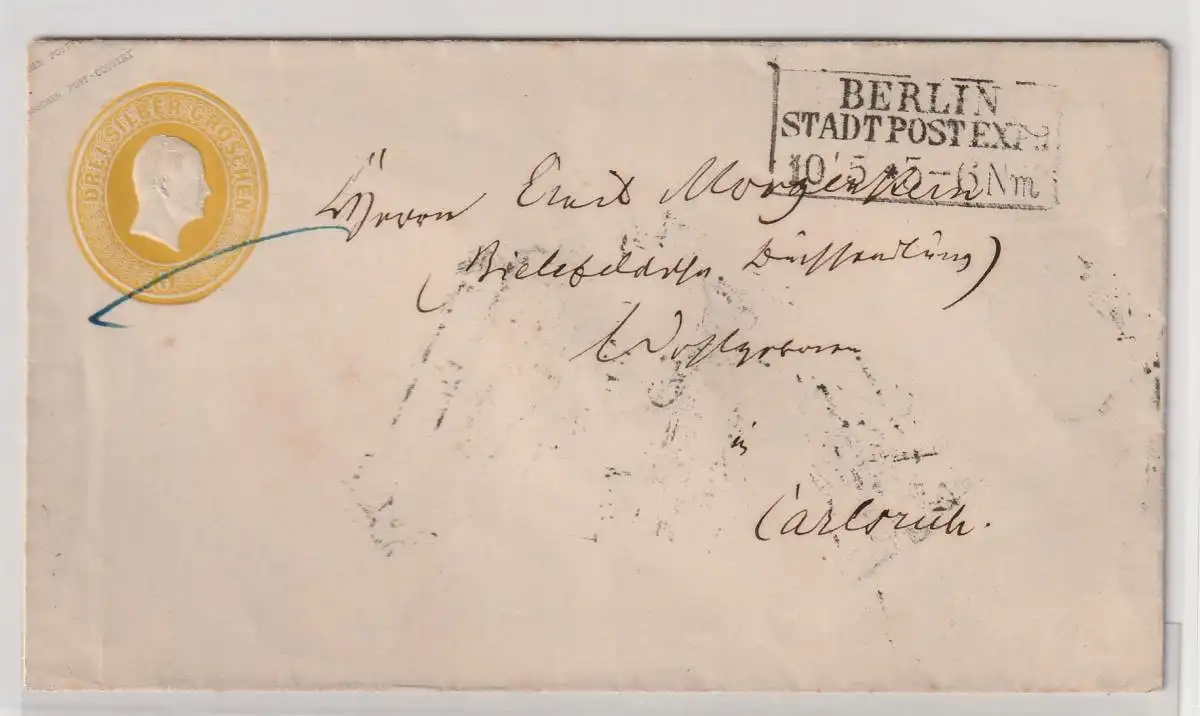 POST-COUVERT
DREI SILBER GROSCHEN
BERLIN
STADTPOSTEXP.
10 5 *5-6 Nm
Herrn Ernst Morgenstern
(Bielefeldsche Buchhandlung)
Wohlgeboren
in
Carlsruh.